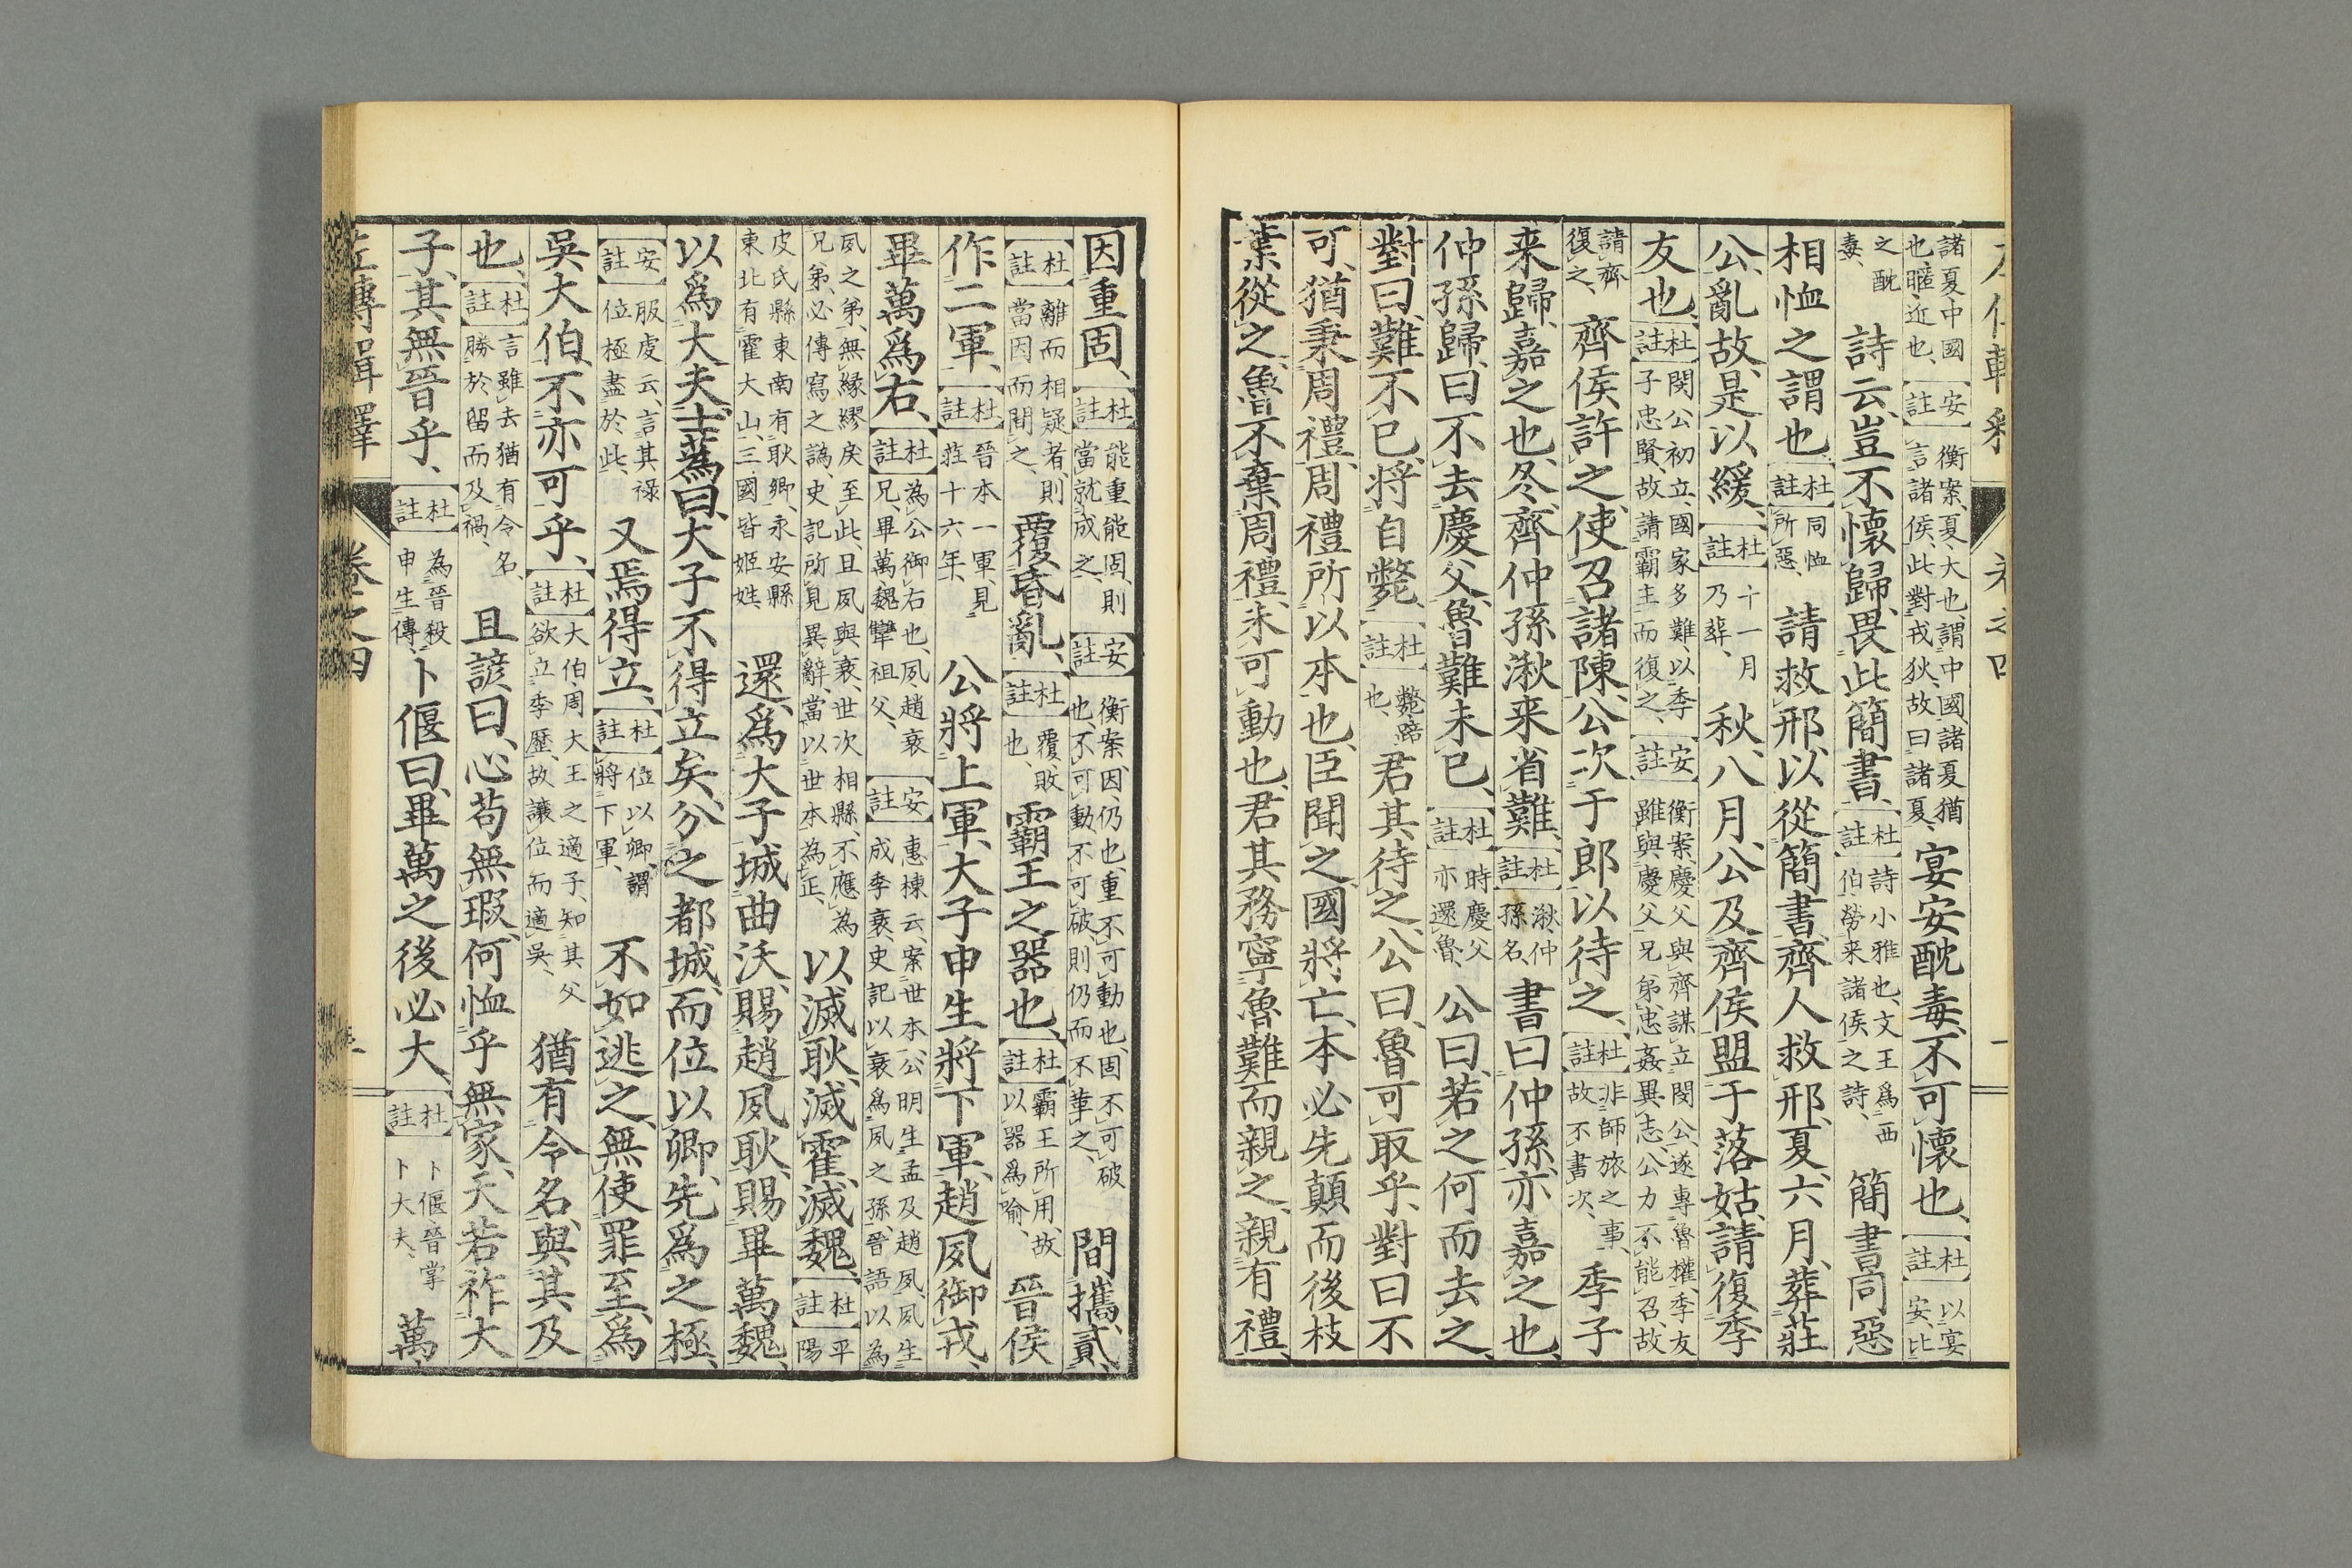 諸夏中國也暱近也、【安註】衡案、夏、大也、謂中國、諸夏猶言諸侯、此對戎狄、故曰諸夏、宴安酖毒、不可懷也、【杜註】以宴安、比
之酖毒、詩云、豈不懷歸、畏此簡書、【杜註】詩小雅也、文王為西伯、勞来諸侯之詩、簡書同惡
相恤之謂也、【杜註】同恤所惡、請救邢、以從簡書、齊人救邢、夏、六月、葬莊
公、亂故、是以緩、【杜註】十一月乃葬、秋、八月、公及齊侯盟于落姑、請復季
友也、【杜註】閔公初立、國家多難、以季子忠賢、故請霸主而復之、【安註】衡案、慶父與齊謀立閔公、遂專魯權、季友雖與慶父兄弟、忠姦異志、公力不能召、故
請齊復之、齊侯許之、使召諸陳、公次于郎以待之、【杜註】非師旅之事、故不書次、季子
来歸、嘉之也、冬、齊仲孫湫来省難、【杜註】湫、仲孫名、書曰仲孫、亦嘉之也、
仲孫歸、曰、不去慶父、魯難未已、【杜註】時慶父亦還魯、公曰、若之何而去之、
對曰、難不已、將自斃、【杜註】斃踣也、君其待之、公曰、魯可取乎、對曰不
可、猶秉周禮、周禮所以本也、臣聞之、國將亡、本必先顛、而後枝
葉從之、魯不棄周禮、未可動也、君其務寧魯難而親之、親有禮、
因重固、【杜註】能重能固、則當就成之、【安註】衡案、因、仍也、重不可動也、固不可破也、不可動、不可破、則仍而不革之、間攜貳、
【杜註】離而相疑者、則當因而間之、覆昏亂、【杜註】覆、敗也、霸王之器也、【杜註】霸王所用、故以器為喻、晉侯
作二軍、【杜註】晉本一軍、見莊十六年、公將上軍、大子申生將下軍、趙夙御戎、
畢萬為右、【杜註】為公御右也、夙、趙衰兄、畢萬魏犨祖父、【安註】惠棟云、案世本、公明生孟及趙夙、夙生成季衰、史記以衰為夙之孫、晉語以為
夙之弟、無緣繆戾至此、且夙與衰、世次相縣、不應為兄弟、必傳寫之譌、史記所見異辭、當以世本為正、以滅耿、滅霍、滅魏、【杜註】平陽
皮氏縣東南有耿鄉、永安縣東北有霍大山、三國皆姬姓、還、為大子城曲沃、賜趙夙耿、賜畢萬魏、
以為大夫、士蒍曰、大子不得立矣、分之都城、而位以卿、先為之極、
【安註】服虔云、言其祿位極盡於此、又焉得立、【杜註】位以卿、謂將下軍、不如逃之、無使罪至、為
吳大伯、不亦可乎、【杜註】大伯、周大王之適子、知其父欲立季歷、故讓位而適吳、猶有令名、與其及
也、【杜註】言雖去猶有令名、勝於留而及禍、且諺曰、心苟無瑕、何恤乎無家、天若祚大
子、其無晉乎、【杜註】為晉殺申生傳、卜偃曰、畢萬之後必大、【杜註】卜偃、晉掌卜大夫、萬、
左傳輯釋 卷之四